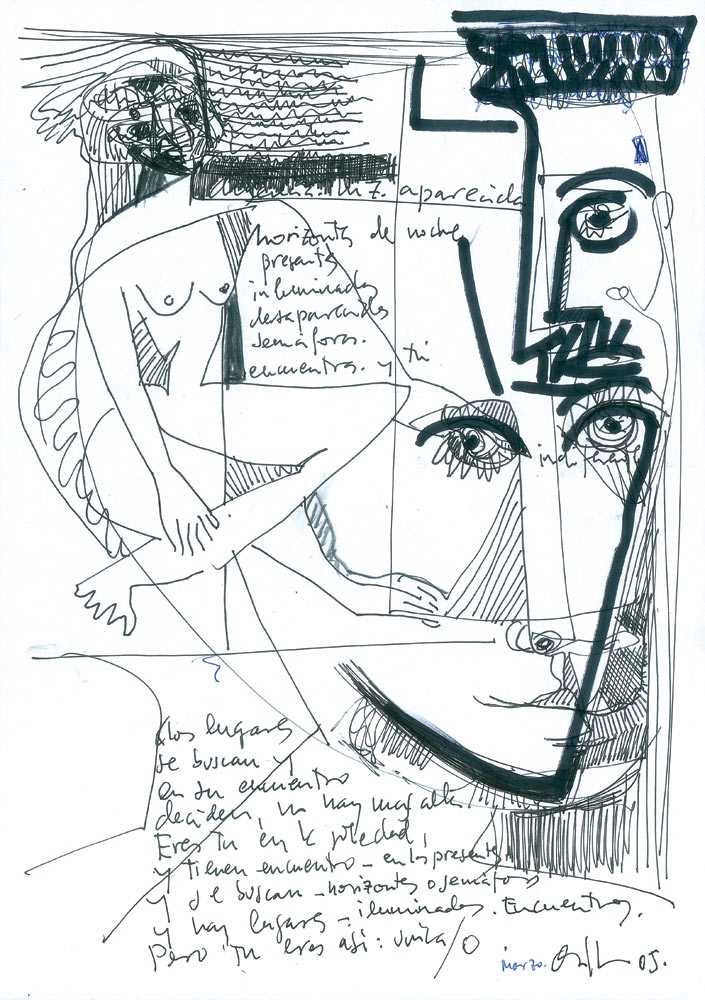 luz. aparecida
horizontes de noche
presentes
iluminados
desaparecidos
semáforos.
encuentros. y tú
Los lugares
se buscan y
en su encuentro
deciden, no hay mas allá.
Eres tú en la soledad,
y tienen encuentro - en los presentes
y se buscan - horizontes o semáforos
y hay lugares - iluminados. Encuentros.
Pero tú eres así:
marzo. 05.